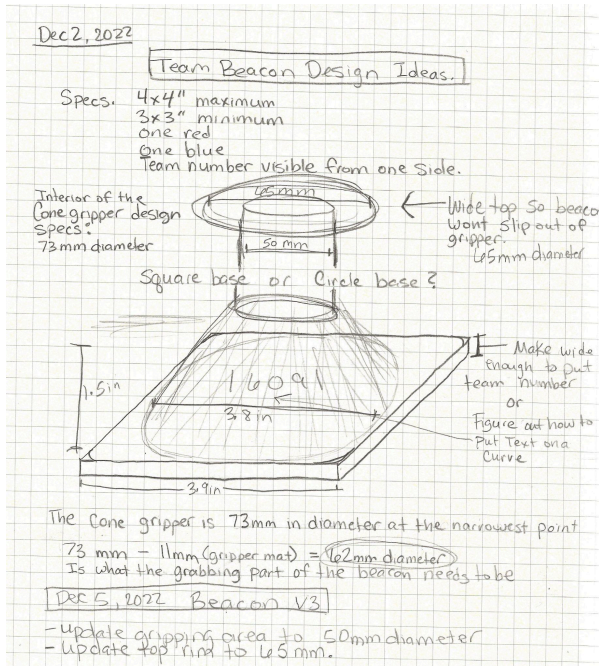 Dec 2, 2022
Team Beacon Design Ideas.
Specs. 4x4" maximum
3x3" minimum
one red
one blue
Team number visible from one side.
Interior of the
Cone gripper design
specs:
73mm diameter
65mm
50mm
Wide top so beacon
wont slip out of
gripper.
65mm diameter
Square base or Circle base?
1.5in
16091
3.8in
3.9in
Make wide
enough to put
team number
or
Figure out how to
Put Text on a
Curve
The cone gripper is 73mm in diameter at the narrowest point
73 mm - 11mm (gripper mat) = 62mm diameter
Is what the grabbing part of the beacon needs to be
Dec 5, 2022 Beacon V3
-update gripping area to 50mm diameter
-update top ring to 65mm.